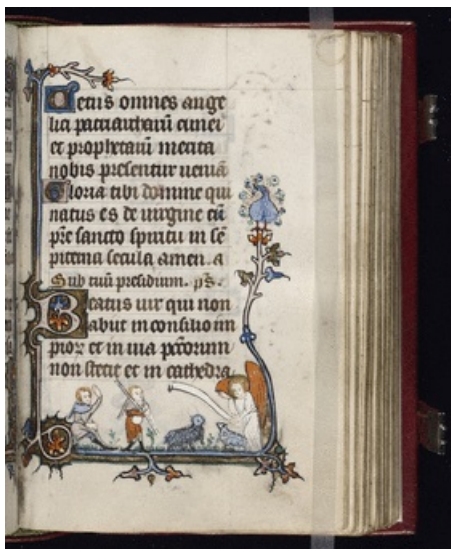 Cetus omnes ange
lici patriarcharū cunei
et prophetarū merita
nobis presentur veniā
Gloria tibi domine qui
natus es de virgine cū
pr̄e sancto spiritu in sē
piterna secula amen. a
Sub tuū presidium. ps̄.
Beatus vir qui non
abiit in consilio im
pior et in via pc̄corum
non stetit et in cathedra